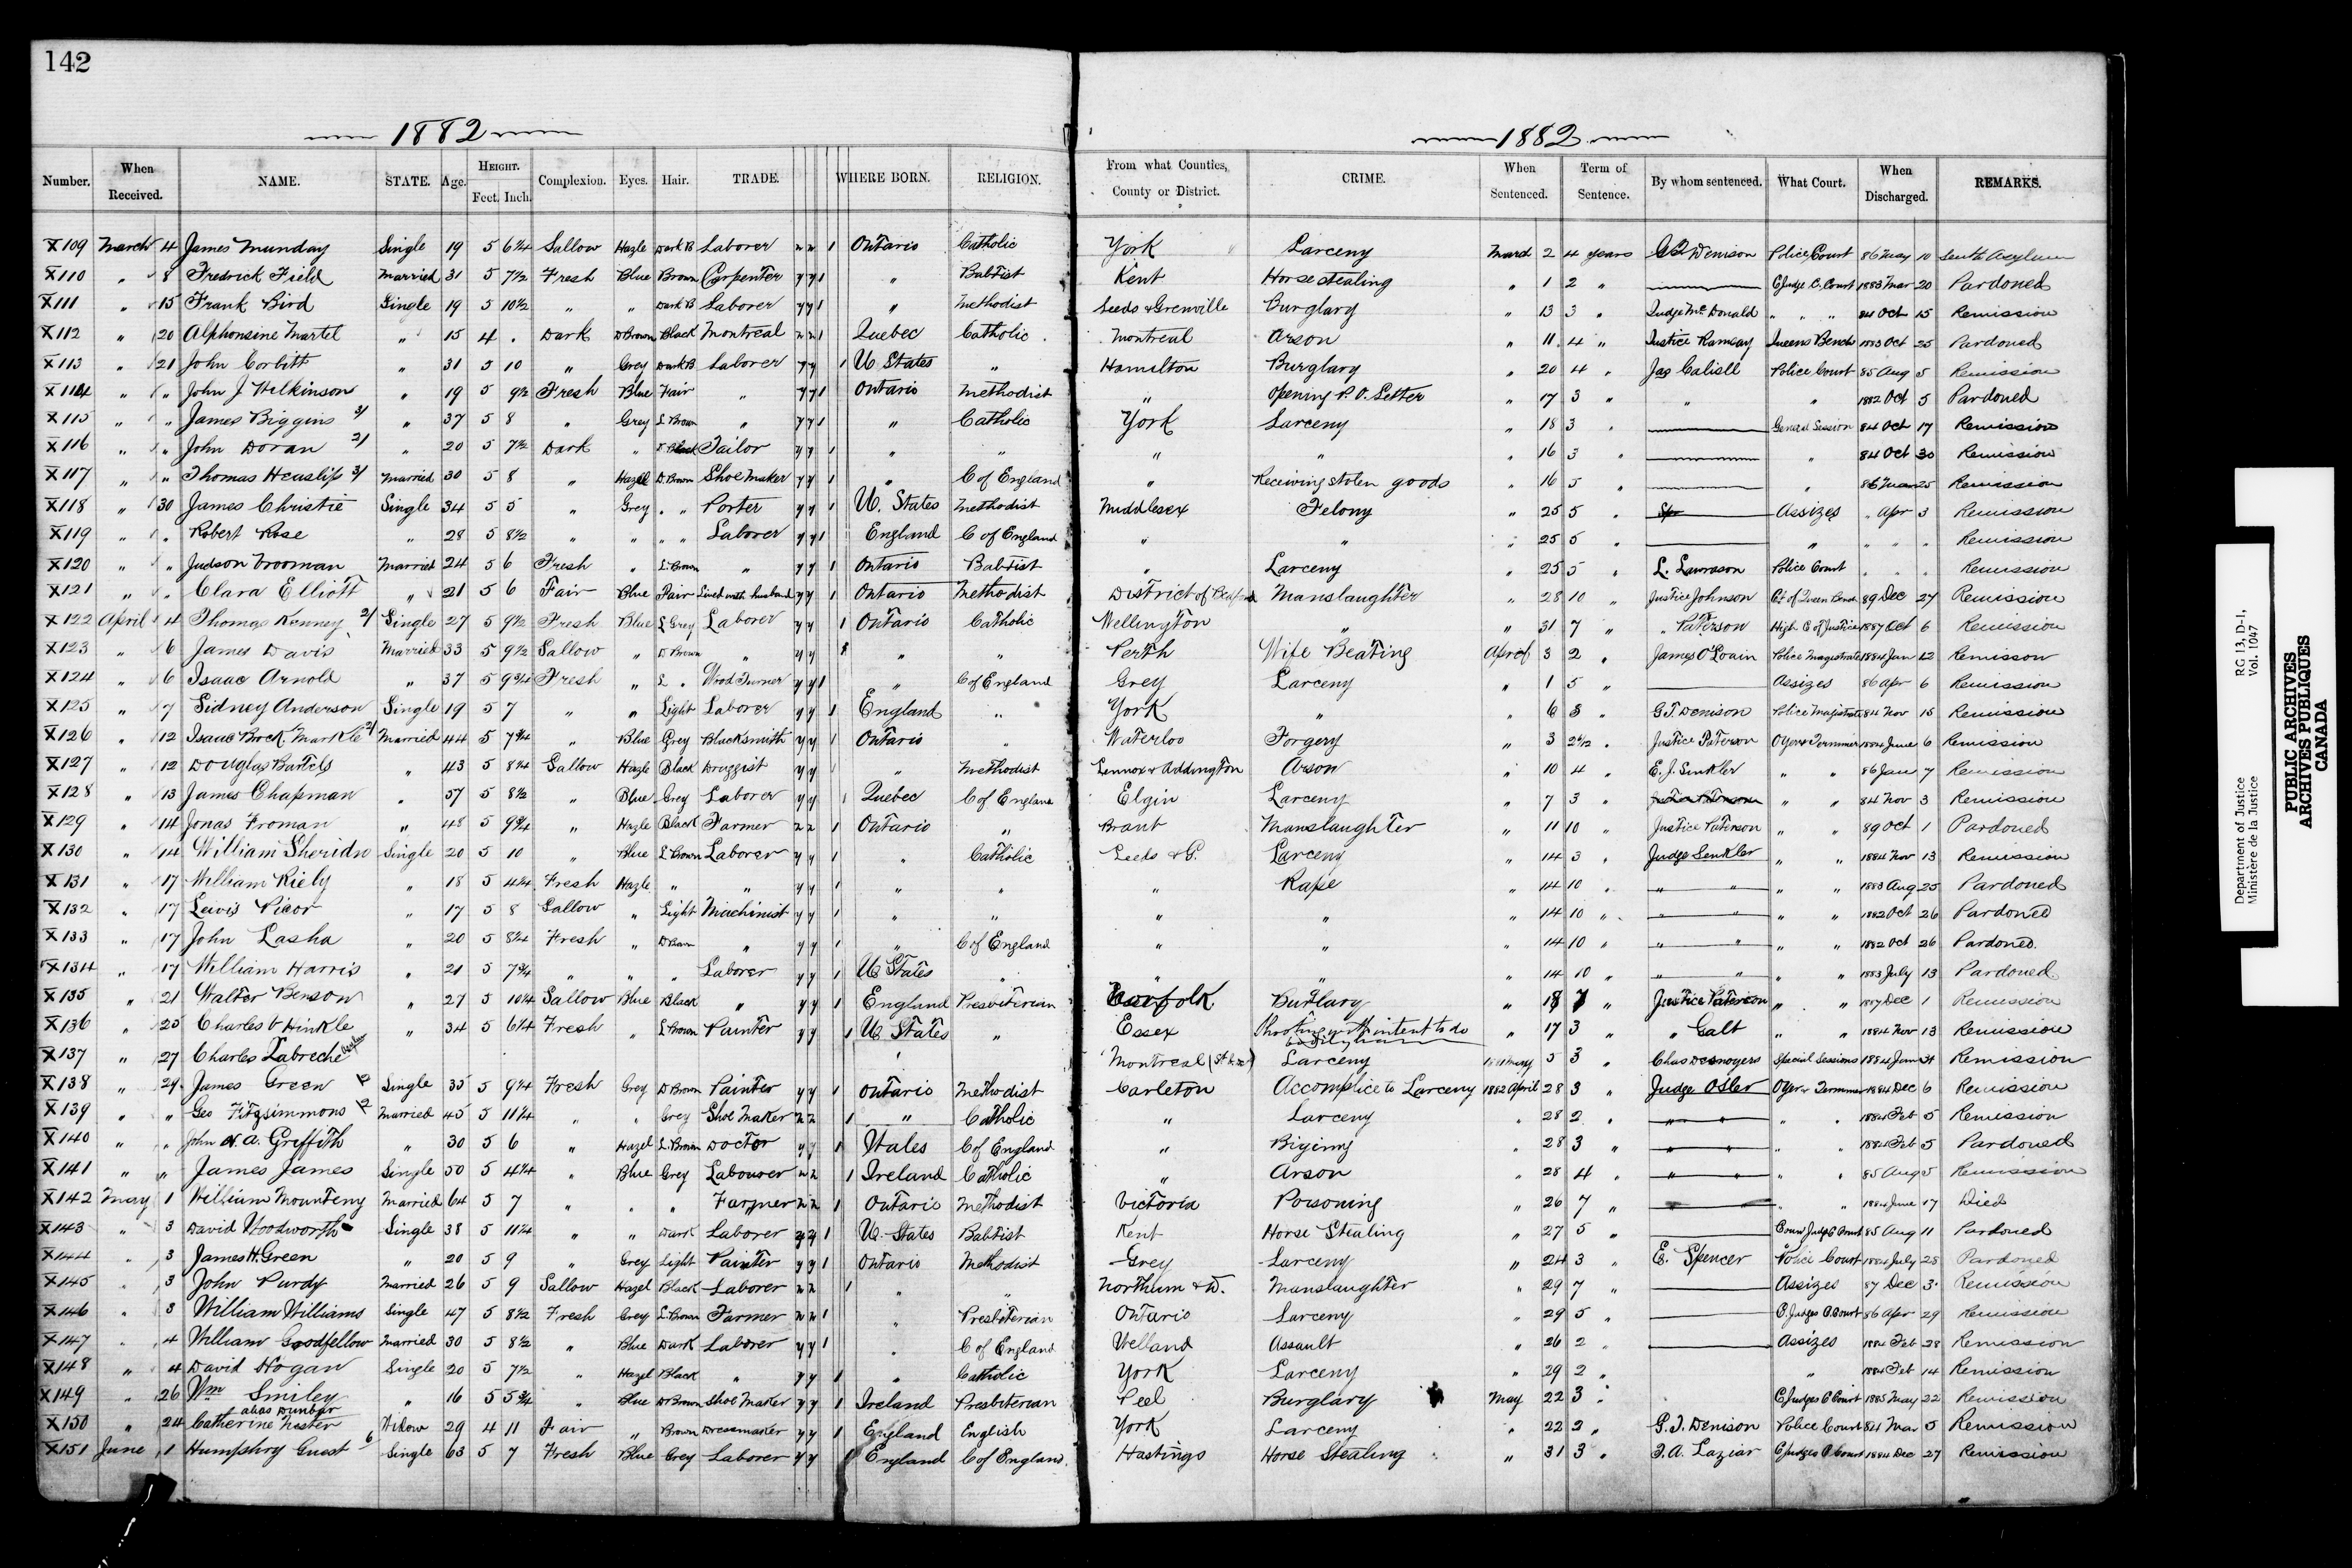 142
1882
1882
Number. When Received. NAME. STATE. Age. HEIGHT. Feet. Inch. Complexion. Eyes. Hair. TRADE. WHERE BORN. RELIGION. From what Counties, County or District. CRIME. When Sentenced. Term of Sentence. By whom sentenced. What Court. When Discharged. REMARKS.
X109 March 4 James Munday Single 19 5 6¼ Sallow Hazle Dark B Laborer 1 Ontario Catholic York Larceny March 2 4 years G T Denison Police Court 86 May 10 Asylum
X110 " 8 Fredrick Field Married 31 5 7½ Fresh Blue Brown Carpenter y y 1 " Babtist Kent Horse stealing " 1 2 " C Judge C. Court 1883 Mar 20 Pardoned
X111 " 15 Frank Bird Single 19 5 10½ " " Dark B Laborer y y 1 " Methodist Leeds & Grenville Burglary " 13 3 " Judge Mc Donald " " " 84 Oct 15 Remission
X112 " 20 Alphonsine Martel " 15 4 . Dark D Brown Black Montreal 1 Quebec Catholic Montreal Arson " 11 4 " Justice Ramsay Queens Bench 1883 Oct 25 Pardoned
X113 " 21 John Corbitt " 31 5 10 " Grey Dark B Laborer y y 1 U. States " Hamilton Burglary " 20 4 " Jas Cahill Police Court 85 Aug 5 Remission
X114 " " John J Wilkinson " 19 5 9½ Fresh Blue Fair " y y 1 Ontario Methodist " Opening P. O. Letter " 17 3 " " " 1882 Oct 5 Pardoned
X115 " " James Biggins 3/ " 37 5 8 " Grey L Brown " y y 1 " Catholic York Larceny " 18 3 " General Session 84 Oct 17 Remission
X116 " " John Doran 2/ " 20 5 7½ Dark " Black Tailor y y 1 " " " " " 16 3 " " 84 Oct 30 Remission
X117 " " Thomas Heaslip 3/ Married 30 5 8 " Hazel D. Brown Shoe Maker y y 1 " C of England " Receiving stolen goods " 16 5 " " 86 Mar 25 Remission
X118 " 30 James Christie Single 34 5 5 " Grey " " Porter y y 1 U. States Methodist Middlesex Felony " 25 5 " Assizes " Apr 3 Remission
X119 " " Robert Rose " 28 5 8½ " " " " Laborer y y 1 England C of England " " " 25 5 " " " " " Remission
X120 " " Judson Vrooman Married 24 5 6 Fresh " L. Brown " y y 1 Ontario Babtist " Larceny " 25 5 " L. Lawrason Police Court " " " Remission
X121 " " Clara Elliott " 21 5 6 Fair Blue Fair Lived with husband y y 1 Ontario Methodist District of Manslaughter " 28 10 " Justice Johnson Ct of Queen Bench 89 Dec 27 Remission
X122 April 4 Thomas Kenney 2/ Single 27 5 9½ Fresh Blue L Grey Laborer y y 1 Ontario Catholic Wellington " " 31 7 " " Paterson High C of Justice 1887 Oct 6 Remission
X123 " 6 James Davis Married 33 5 9½ Sallow " D Brown " y y 1 " " Perth Wife Beating April 3 2 " James O'Loain Police Magistrate 1884 Jan 12 Remisson
X124 " 6 Isaac Arnold " 37 5 9¾ Fresh " L " Wood Turner y y 1 " C of England Grey Larceny " 1 5 " Assizes 86 Apr 6 Remission
X125 " 7 Sidney Anderson Single 19 5 7 " " Light Laborer y y 1 England " York " " 6 3 " G. T. Denison Police Majistrate 84 Nov 15 Remission
X126 " 12 Isaac Brock Markle 2/ Married 44 5 7¾ " Blue Grey Blacksmith y y 1 Ontario " Waterloo Forgery " 3 2 6/12 " Justice Paterson Oyer & Terminer 1884 June 6 Remission
X127 " 12 Douglas Bartels " 43 5 8¼ Sallow Hazle Black Druggist y y 1 " Methodist Lennox & Addington Arson " 10 4 " E. J. Senkler " " 86 Jan 7 Remission
X128 " 13 James Chapman " 57 5 8½ " Blue Grey Laborer y y 1 Quebec C of England Elgin Larceny " 7 3 " Justice Paterson " " 84 Nov 3 Remission
X129 " 14 Jonas Froman " 48 5 9¾ " Hazle Black Farmer 1 Ontario " Brant Manslaughter " 11 10 " Justice Paterson " " 89 Oct 1 Pardoned
X130 " 14 William Sheridn Single 20 5 10 " Blue L Brown Laborer y y 1 " Catholic Leeds & G. Larceny " 14 3 " Judge Senkler " " 1884 Nov 13 Remission
X131 " 17 William Riely " 18 5 4¼ Fresh Hazle " " y y 1 " " " Rape " 14 10 " " " " " 1883 Aug 25 Pardoned
X132 " 17 Lewis Picor " 17 5 8 Sallow " Light Machinist y y 1 " " " " " 14 10 " " " " " 1882 Oct 26 Pardoned
X133 " 17 John Lasha " 20 5 8¼ Fresh " D Brown " y y 1 " C of England " " " 14 10 " " " " " 1882 Oct 26 Pardoned
X134 " 17 William Harris " 21 5 7¾ " " " Laborer y y 1 U States " " " " 14 10 " " " " " 1883 July 13 Pardoned
X135 " 21 Walter Benson " 27 5 10¼ Sallow Blue Black " y y 1 England Presbiterian Burglary " 18 7 " Justice Paterson " " 1887 Dec 1 Remission
X136 " 25 Charles V Hinkle " 34 5 6¼ Fresh " L Brown Painter y y 1 U. States " Essex Shooting with intent to do bodily harm " 17 3 " " Galt " " 1884 Nov 13 Remission
X137 " 27 Charles Labreche Montreal Larceny 1881 May 5 3 " Chas Desnoyers Special Sessions 1884 Jan 31 Remission
X138 " 29 James Green Single 35 5 9¼ Fresh Grey D Brown Painter y y 1 Ontario Methodist Carleton Accomplice to Larceny 1882 April 28 3 " Judge Osler Oyer & Terminer 1884 Dec 6 Remission
X139 " " Geo Fitzsimmons Married 45 5 11¼ " " Grey Shoe Maker 1 " Catholic " Larceny " 28 2 " " " " " 1884 Feb 5 Remission
X140 " " John A. Griffith " 30 5 6 " Hazel L. Brown Doctor y y 1 States C of England " Bigimy " 28 3 " " " " " 1884 Feb 5 Pardoned
X141 " " James James Single 50 5 4¼ " Blue Grey Labourer 1 Ireland Catholic " Arson " 28 4 " " " " " 85 Aug 5 Remission
X142 May 1 William Mounteny Married 64 5 7 " " " Farmer 1 Ontario Methodist Victoria Poisoning " 26 7 " " " 1884 June 17 Died
X143 " 3 David Woodworth Single 38 5 11¼ " " Dark Laborer 1 U. States Babtist Kent Horse Stealing " 27 5 " Coun Judg C Court 85 Aug 11 Pardoned
X144 " 3 James H. Green " 20 5 9 " Grey Light Painter y y 1 Ontario Methodist Grey Larceny " 24 3 " E. Spencer Police Court 1884 July 28 Pardoned
X145 " 3 John Purdy Married 26 5 9 Sallow Hazel Black Laborer 1 " " Northum & D. Manslaughter " 29 7 " Assizes 87 Dec 3 Remission
X146 " 3 William Williams Single 47 5 8½ Fresh Grey L. Brown Farmer 1 " Presbiterian Ontario Larceny " 29 5 " C. Judges C. Court 86 Apr 29 Remission
X147 " 4 William Goodfellow Married 30 5 8½ " Blue Dark Laborer y y 1 " C of England Welland Assault " 26 2 " Assizes 1884 Feb 28 Remission
X148 " 4 David Hogan Single 20 5 7½ " Hazel Black " y y 1 " Catholic York Larceny " 29 2 " " 1884 Feb 14 Remission
X149 " 26 Wm Smiley " 16 5 5¾ " Blue D Brown Shoe Maker y y 1 Ireland Presbiterian Peel Burglary May 22 3 " C Judges C Court 1885 May 22 Remission
alias Dunbar
X150 " 24 Catherine Nester Widow 29 4 11 Fair " Brown Dressmaker y y 1 England English York Larceny " 22 2 " G. T. Denison Police Court 84 Mar 5 Remission
X151 June 1 Humphry Guest 6 Single 63 5 7 Fresh Blue Grey Laborer y y 1 England C of England Hastings Horse Stealing " 31 3 " T. A. Laziar C Judges C Court 1884 Dec 27 Remission
Department of Justice RG 13, D-1,
Ministère de la Justice Vol. 1047
PUBLIC ARCHIVES
ARCHIVES PUBLIQUES
CANADA